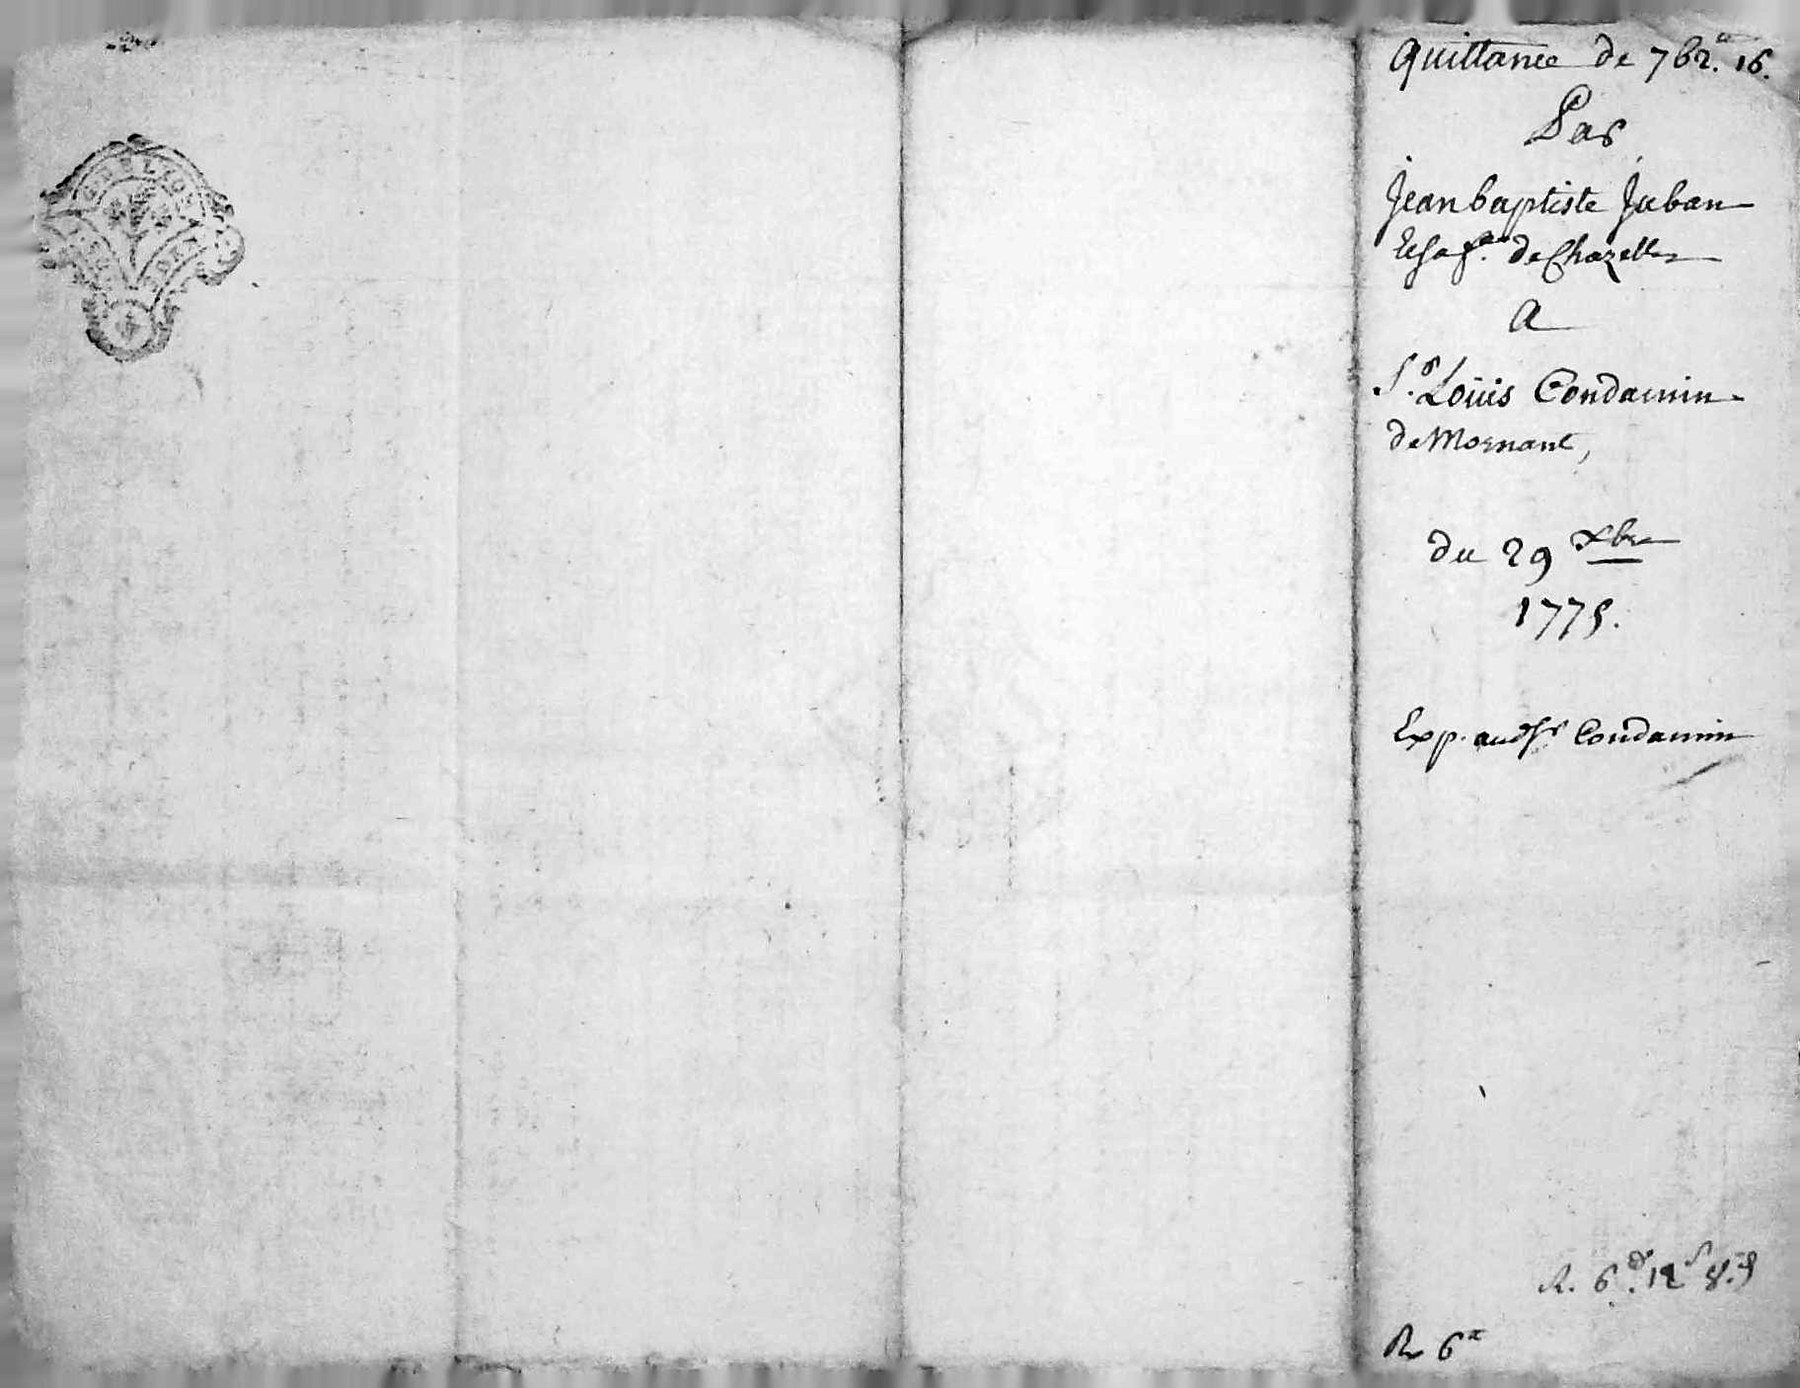 quittance de 762.ᵗᵗ 16.
Par
Jean baptiste Juban
de Chazelles
A
S.ʳ Loüis Condamin
de Mornant,
du 29 Xbre
1775.
Exp. aud Sʳ Condamin
R. 6.ᵗᵗ 12ˢ
R 6ᵗᵗ